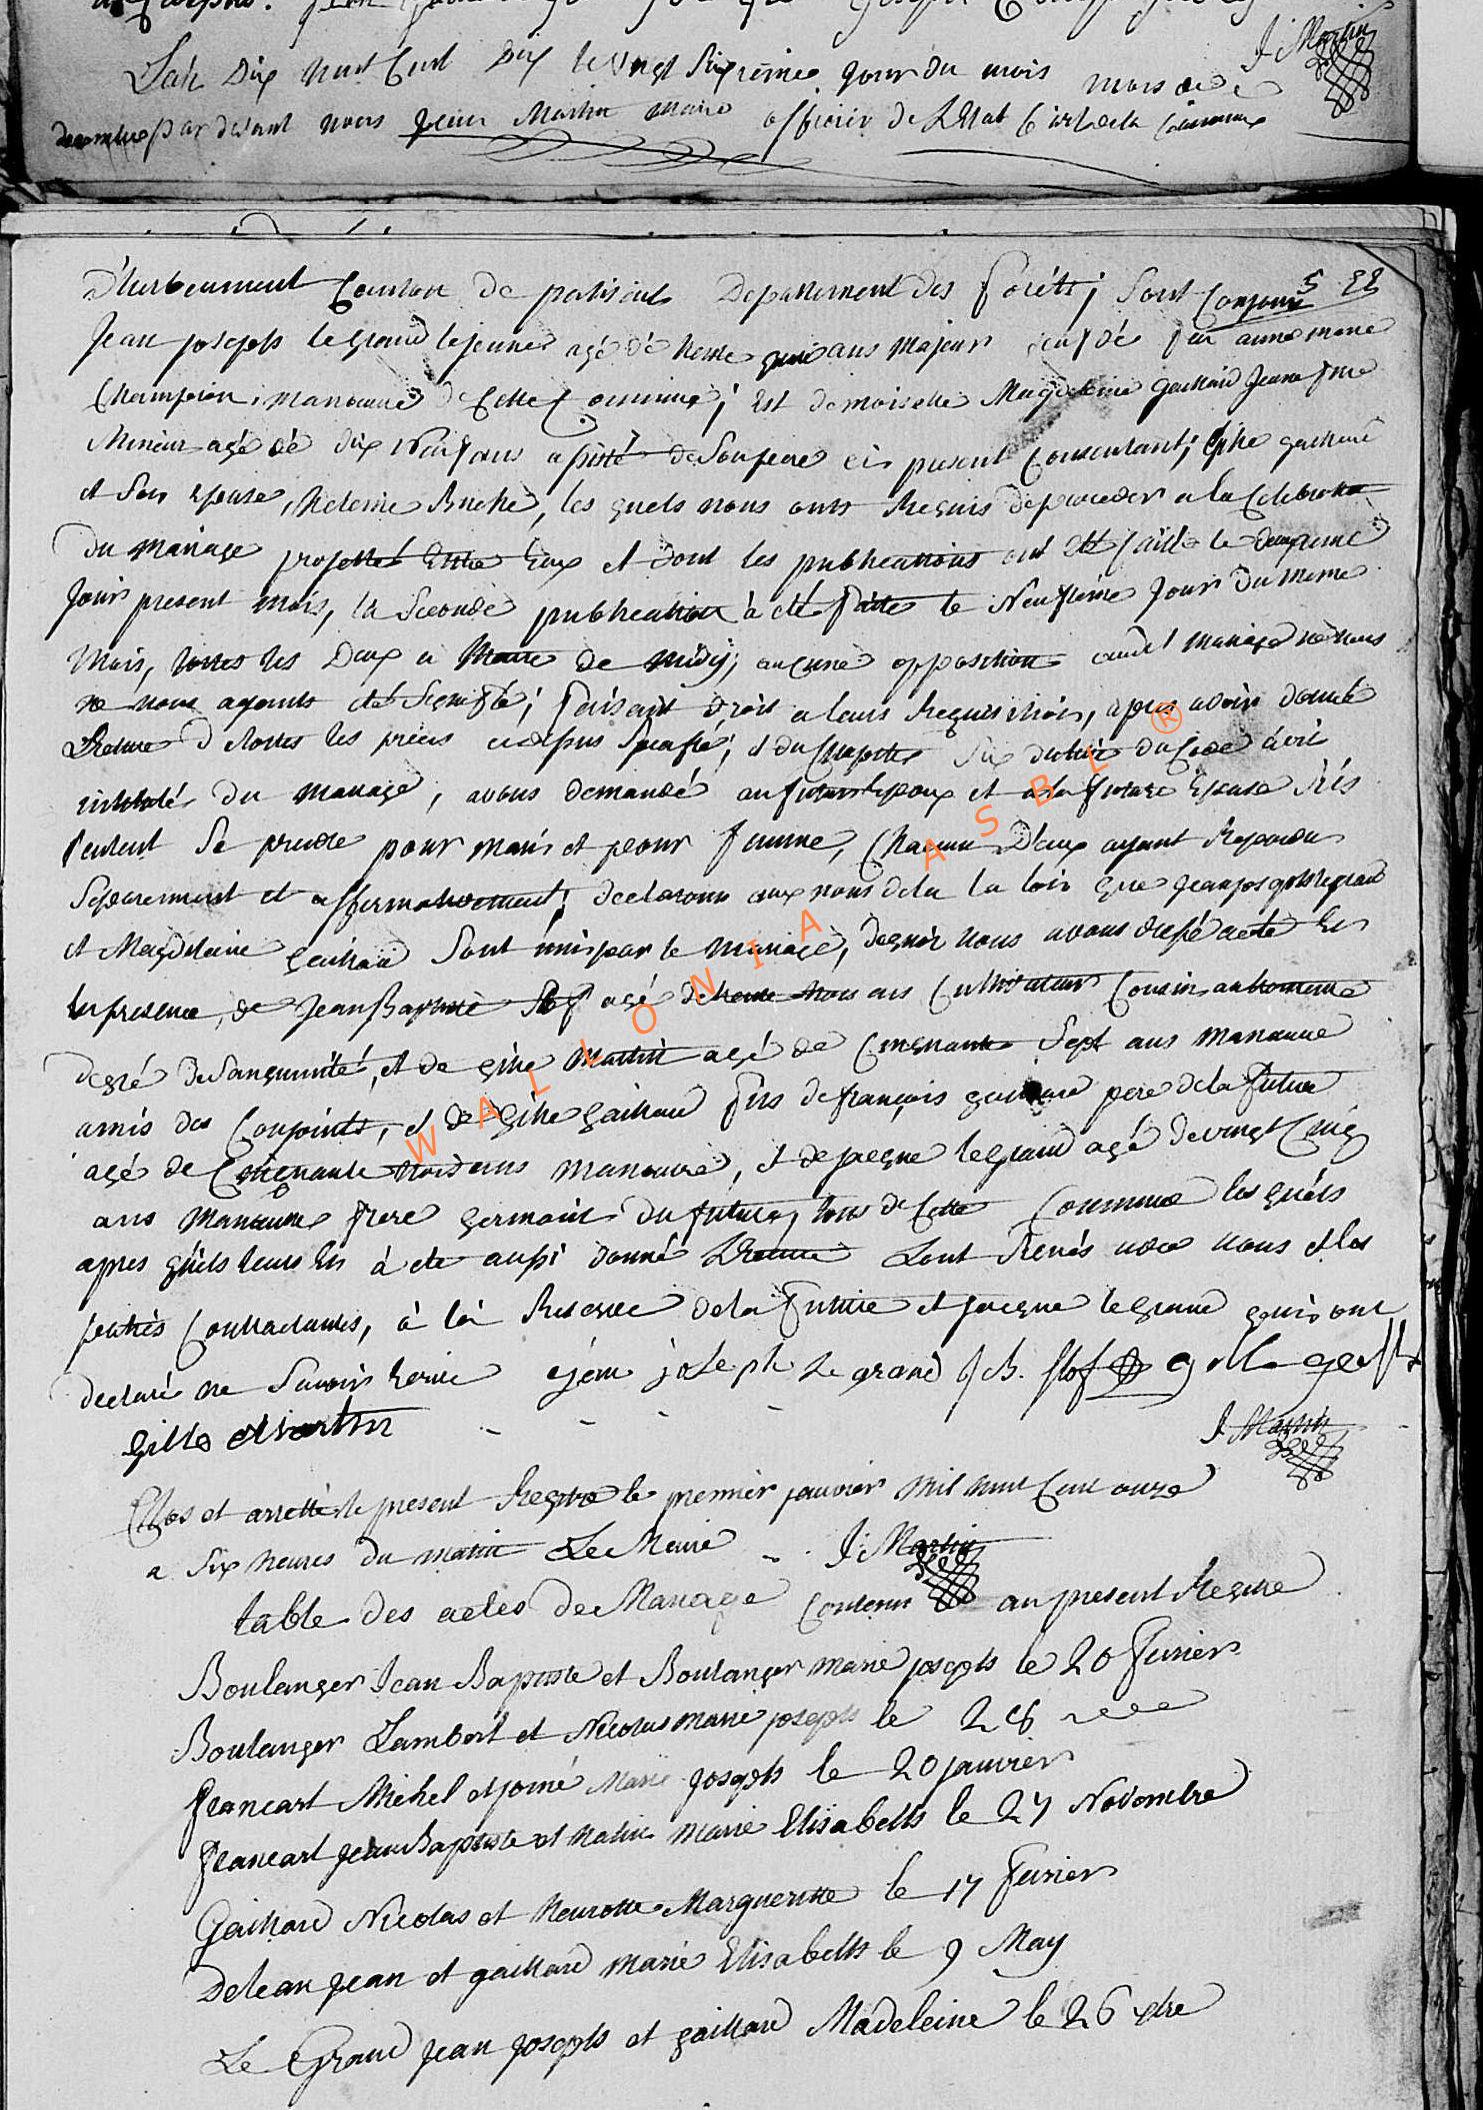 J: Martin
L'an Dix huit Cent Dix le vingt sixieme jour du mois mois de
decembre par devant nous jean Martin maire officier de L'Etat Civil de la Commune
5 22
d'herbeumont Canton de paliseul Departement des forêts, sont Comparu
Jean joseph le grand lejeune agé dé trente ans majeur veuf dé feu anne marie
Champion, manœuvre de Cette Commune; Est demoiselle Magdeleine gaillard Jeune fille
Mineur agé dé dix Neuf ans assisté de Son pere ici present Consentant, gille gaillard
et son Epouse, helene Buché, les quels nous ont Requis de proceder a la Celebration
du mariage projetté Entre Eux et dont les publications ont Eté faitte le deuxieme
Jour present mois, la Seconde publication à eté faitte le Neufieme Jour du meme
Mois, toutes les Deux a heure de midy; aucune opposition audit mariage
ne nous ayants eté Signifié; faisant droit a leurs Requisition, apres avoir donné
Lecture de toutes les pieces cidessus, et du Chapitre Six du titre du Code civil
intitulés du mariage, avons demandé au futur Epoux et a la future Epouse s'ils
veulent Se prendre pour mari et pour femme, Chacun D'eux ayant Repondu
Separement et affermativement; declarons aux nom de la la loix que jean joseph legrand
et Magdeleine gaillard Sont unis par le mariage, dequoi nous avons dressé acte En
En presence, de Jean Baptiste Slof agé de trente trois ans Cultivateur Cousin au troisieme
degré de Sanguinité, et de gille Martin agé de Cinquante Sept ans manœuvre
amis des Conjoints, et de gille gaillard fils de françois gaillard pere de la future
agé de Cinquante trois ans manœuvre, et de jacque le grand agé de vingt Cinq
ans Manœuvre frere germain du futur, tous de Cette Commune les quels
apres qu'ils leurs En à eté aussi donné Lecture Lont Signés avec nous et les
parties Contractantes, à la Reserve de la future et jacque le grand qui ont
declaré ne Savoir Ecrire jean joseph Le grand J.B. Slof
gille Martin
J. Martin
Clos et arretté le present Registre le premier janvier mil huit Cent onze
a Six heures du matin Le Maire J: Martin
table des actes de Mariage Contenu au present Registre
Boulanger Jean Baptiste et Boulanger marie joseph le 20 fevrier
Boulanger Lambert et Nicolas marie joseph le 26
francart Michel et jomé Marie Joseph le 20 janvier
francart jean Baptiste et Marie Elisabeth le 27 Novembre
Gaillard Nicolas et Marguerite le 17 fevrier
Deleau jean et gaillard marie Elisabeth le 9 May
Le Grand jean joseph et gaillard Madeleine le 26 xbre
WALLONIA ASBL ®